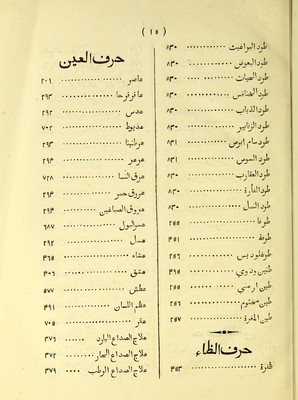 ( ١٥ )
طرد البراغيث ٨٣٠
طرد البعوض ٨٣٠
طرد الحيات ٨٣٠
طرد الخنافس ٨٣٠
طرد الذباب ٨٣٠
طرد الزنابير ٨٣٠
طرد سام ابرص ٨٣١
طرد السوس ٨٣١
طرد العقارب ٨٣٠
طرد الفأرة ٨٣٠
طرد النمل ٨٣٠
طرفا ٢٥٥
طرفة ٤٥١
طرغلوديس ٢٥٥
طنين ودوي ٤٩٥
طين ارمني ٢٥٥
طين مختوم ٢٥٦
طين المغرة ٢٥٧
حرف الظاء
ظفرة ٤٥٣
حرف العين
عاصر ٢٠١
عاقرقرحا ٢٩٣
عدس ٢٩٢
عذيوط ٧٠٢
عرطنيثا ٢٩٣
عرعر ٢٩٤
عرق النسا ٧٢٨
عروق حمر ٢٩٤
عروق الصباغين ٢٩٤
عسر البول ٦٨٧
عسل ٢٩٢
عشاء ٤٦٥
عشق ٤٠٦
عطش ٥٧٧
عظم اللسان ٤٩١
عقر ٧٠٥
علاج الصداع البارد ٣٧٦
علاج الصداع الحار ٣٧٢
علاج الصداع الرطب ٣٧٩